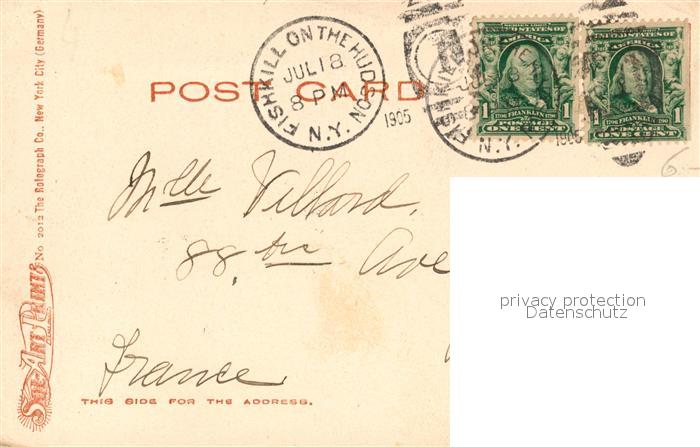 POST CARD
FISHKILL ON THE HUDSON
JUL 18
8 PM
N.Y.
1905
FISHKILL
N.Y.
1905
SERIES 1902
UNITED STATES OF
AMERICA
1 1
1706 FRANKLIN 1790
POSTAGE
ONE CENT
UNITED STATES OF
AMERICA
1 1
1706 FRANKLIN 1790
POSTAGE
ONE CENT
6.—
Mlle Villard.
88. bis Ave
France
THIS SIDE FOR THE ADDRESS.
No. 2012 The Rotograph Co., New York City (Germany)
Sol-Art Prints
privacy protection
Datenschutz